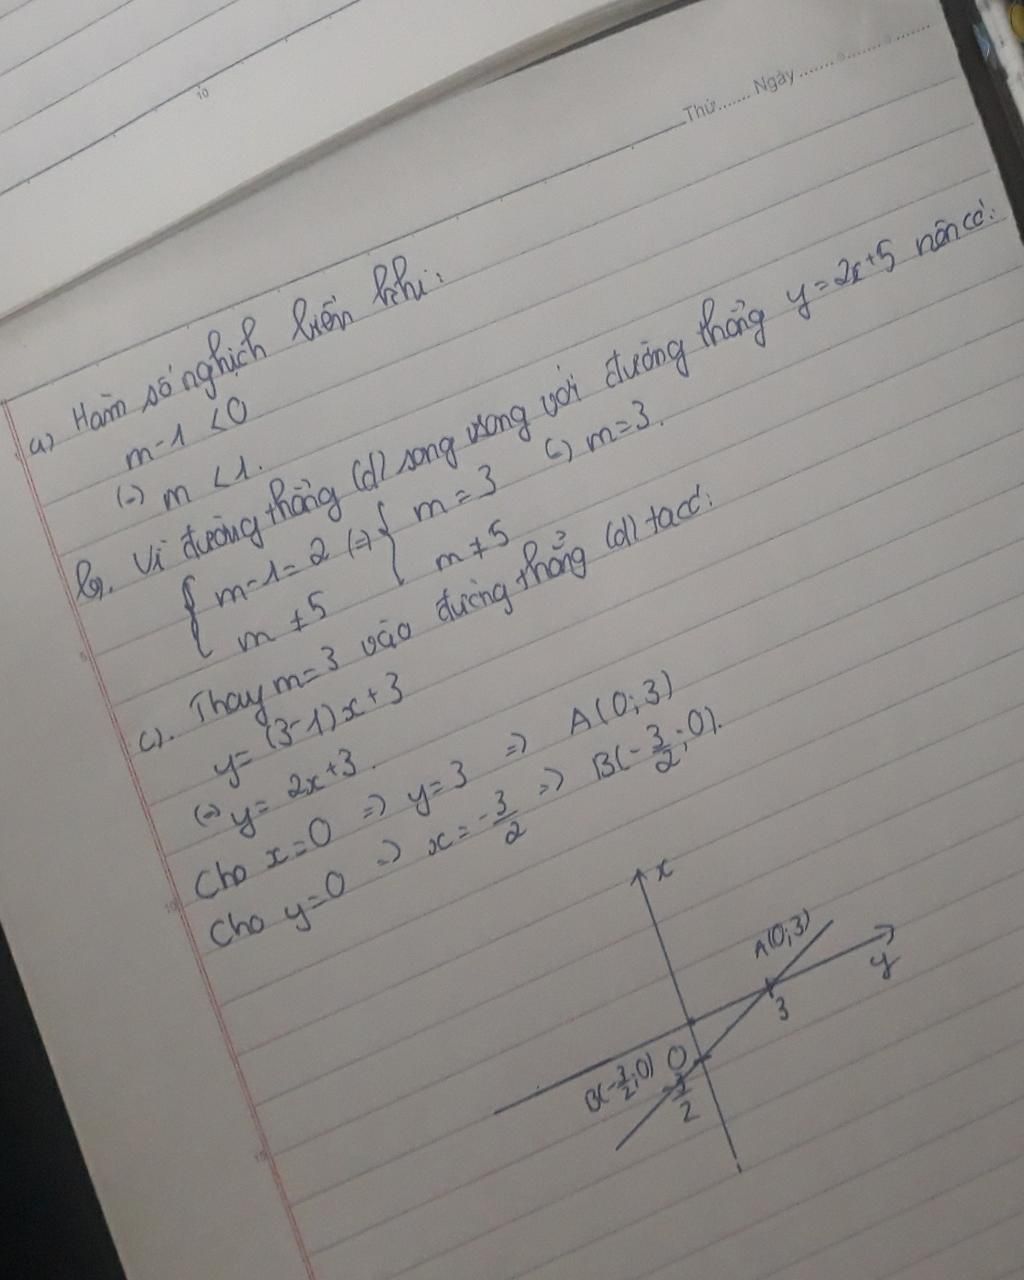 10
Thứ....... Ngày ....... o ....... o .......
a) Hàm số nghịch biến khi:
m-1 <0
(=) m <1.
b). Vì đường thẳng (d) song song với đường thẳng y=2x+5 nên có:
{ m-1=2 (=) { m=3 (=) m=3.
m ≠5 m ≠5
c). Thay m=3 vào đường thẳng (d) ta có:
y= (3-1)x+3
(=) y= 2x+3.
Cho x=0 => y=3 => A(0;3)
Cho y=0 => x=-3/2 => B(-3/2;0).
x
A(0;3)
y
3
O
B(-3/2;0)
-3/2